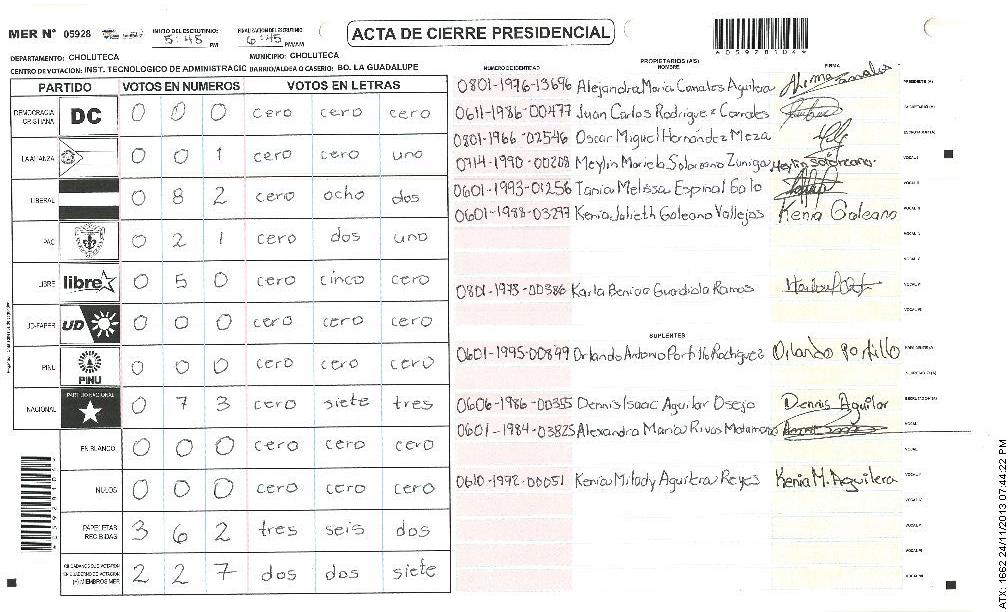 MER N° 05928
INICIO DEL ESCRUTINIO: 5:45 PM
FINALIZACION DE ESCRUTINIO 6:45 PM/AM
ACTA DE CIERRE PRESIDENCIAL
A05928104
DEPARTAMENTO: CHOLUTECA
MUNICIPIO: CHOLUTECA
CENTRO DE VOTACION: INST. TECNOLOGICO DE ADMINISTRACIC BARRIO/ALDEA O CASERIO: BO. LA GUADALUPE
PARTIDO VOTOS EN NUMEROS VOTOS EN LETRAS
DEMOCRACIA CRISTIANA DC 0 0 0 cero cero cero
LA ALIANZA 0 0 1 cero cero uno
LIBERAL 0 8 2 cero ocho dos
PAC 0 2 1 cero dos uno
LIBRE libre 0 5 0 cero cinco cero
UD-FAPER UD 0 0 0 cero cero cero
PINU PINU 0 0 0 cero cero cero
NACIONAL PARTIDO NACIONAL 0 7 3 cero siete tres
EN BLANCO 0 0 0 cero cero cero
NULOS 0 0 0 cero cero cero
PAPELETAS RECIBIDAS 3 6 2 tres seis dos
CIUDADANOS QUE VOTARON EN CUADERNO DE VOTACION (+) MIEMBROS MER 2 2 7 dos dos siete
PROPIETARIOS (AS)
NUMERO DE IDENTIDAD NOMBRE FIRMA
0801-1976-13696 Alejandra Maria Canales Aguilera PRESIDENTE (A)
0611-1986-00477 Juan Carlos Rodriguez Corrales SECRETARIO (A)
0801-1966-02546 Oscar Miguel Hernández Meza ESCRUTADOR (A)
0714-1990-00208 Meylin Mariela Solorzano Zuniga Meylin Solorzano. VOCAL I
0601-1993-01256 Tania Melissa Espinal Galo VOCAL II
0601-1988-03277 Kenia Julieth Galeano Vallejos Kenia Galeano VOCAL III
VOCAL IV
VOCAL V
0801-1973-00386 Karla Benicia Guardiola Ramos VOCAL VI
VOCAL VII
SUPLENTES
0601-1995-00899 Orlando Antonio Portillo Rodriguez Orlando Portillo PRESIDENTE (A)
SECRETARIO (A)
0606-1986-00355 Dennis Isaac Aguilar Osejo Dennis Aguilar ESCRUTADOR (A)
0601-1984-03825 Alexandra Maria Rivas Matamoros VOCAL I
VOCAL II
0610-1992-00051 Kenia Milady Aguilera Reyes Kenia M. Aguilera VOCAL III
VOCAL IV
VOCAL V
VOCAL VI
VOCAL VII
ATX: 1662 24/11/2013 07:44:22 PM